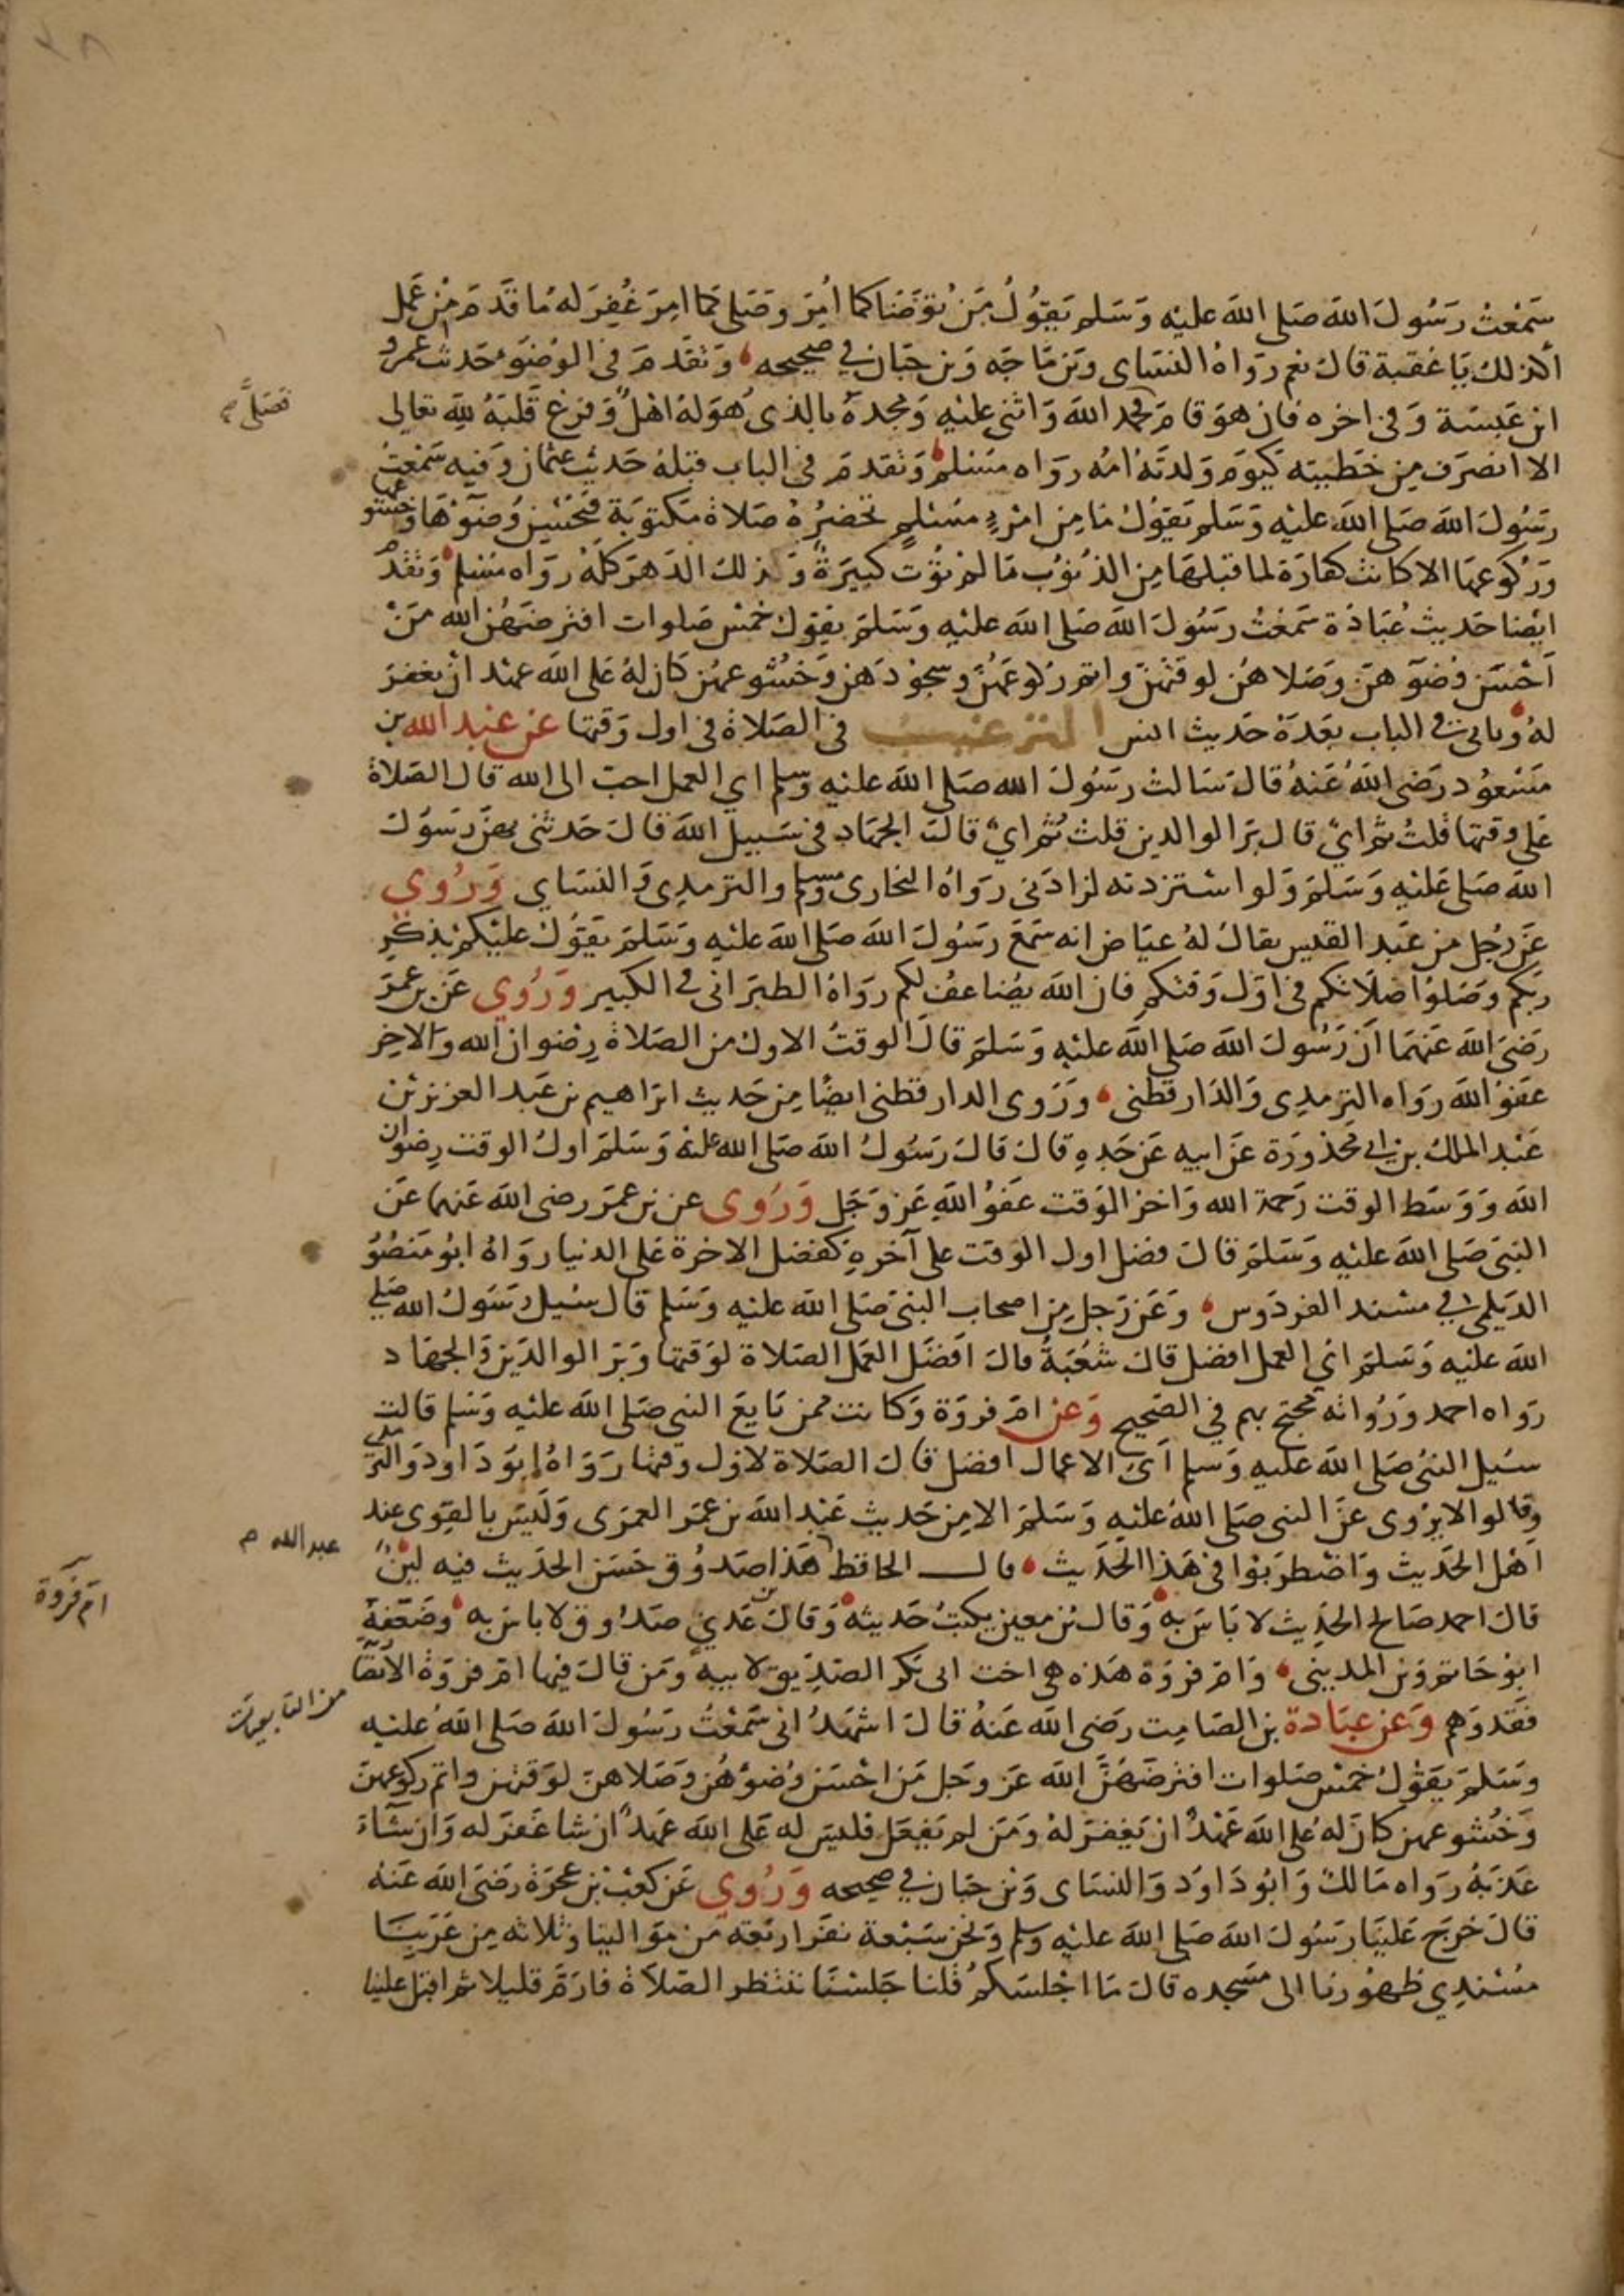 سمعت رسول الله صلى الله عليه وسلم يقول من توضا كما امر وصلى كما امر غفر له ما قدم من عمل
اكذلك يا عقبة قال نعم رواه النساى وبن ماجه وبن حبان في صحيحه وتقدم في الوضوء حديث عمرو
ابن عبسة وفي اخره فان هو قام فحمد الله واثنى عليه ومجده بالذى هو له اهل وفرغ قلبه لله تعالى
فصلى صح
الا انصرف من خطيته كيوم ولدته امه رواه مسلم وتقدم في الباب قبله حديث عثمان وفيه سمعت
رسول الله صلى الله عليه وسلم يقول ما من امرء مسلم تحضره صلاة مكتوبة فيحسن وضوءها وخشوعها
وركوعها الا كانت كفارة لما قبلها من الذنوب ما لم يؤت كبيرة وذلك الدهر كله رواه مسلم وتقدم
ايضا حديث عبادة سمعت رسول الله صلى الله عليه وسلم يقول خمس صلوات افترضهن الله من
احسن وضوءهن وصلاهن لوقتهن واتم ركوعهن وسجودهن وخشوعهن كان له على الله عهد ان يغفر
له وياتي في الباب بعده حديث انس الترغيب في الصلاة في اول وقتها عن عبد الله بن
مسعود رضى الله عنه قال سالت رسول الله صلى الله عليه وسلم اي العمل احب الى الله قال الصلاة
على وقتها قلت ثم اي قال بر الوالدين قلت ثم اي قال الجهاد في سبيل الله قال حدثني بهن رسول
الله صلى عليه وسلم ولو استزدته لزادنى رواه البخارى ومسلم والترمذى والنساي وروي
عن رجل من عبد القيس يقال له عياض انه سمع رسول الله صلى الله عليه وسلم يقول عليكم بذكر
ربكم وصلوا صلاتكم في اول وقتكم فان الله يضاعف لكم رواه الطبراني في الكبير وروي عن بن عمر
رضى الله عنهما ان رسول الله صلى الله عليه وسلم قال الوقت الاول من الصلاة رضوان الله والاخر
عفو الله رواه الترمذى والدارقطنى وروى الدارقطنى ايضا من حديث ابراهيم بن عبد العزيز بن
عبد الملك بن ابي محذورة عن ابيه عن جده قال قال رسول الله صلى الله عليه وسلم اول الوقت رضوان
الله ووسط الوقت رحمة الله واخر الوقت عفو الله عز وجل وروى عن بن عمر رضى الله عنهما عن
النبى صلى الله عليه وسلم قال فضل اول الوقت على آخره كفضل الاخرة على الدنيا رواه ابو منصور
الديلمى في مسند الفردوس وعن رجل من اصحاب النبى صلى الله عليه وسلم قال سئل رسول الله صلى
الله عليه وسلم اى العمل افضل قال شعبة قال افضل العمل الصلاة لوقتها وبر الوالدين والجهاد
رواه احمد ورواته محتج بهم في الصحيح وعن ام فروة وكانت ممن بايع النبي صلى الله عليه وسلم قالت
سئل النبى صلى الله عليه وسلم اى الاعمال افضل قال الصلاة لاول وقتها رواه ابو داود والترمذى
وقال لا يروى عن النبى صلى الله عليه وسلم الا من حديث عبد الله بن عمر العمرى وليس بالقوى عند
اهل الحديث واضطربوا في هذا الحديث قال الحافظ هذا صدوق حسن الحديث فيه لين
عبد الله م
ام فروة
قال احمد صالح الحديث لا باس به وقال بن معين يكتب حديثه وقال بن عدي صدوق لا باس به وضعفه
ابو حاتم وبن المدينى وام فروة هذه هى اخت ابى بكر الصديق لابيه ومن قال فيها ام فروة الانصا
من التابعيات
فقد وهم وعن عبادة بن الصامت رضى الله عنه قال اشهد انى سمعت رسول الله صلى الله عليه
وسلم يقول خمس صلوات افترضهن الله عز وجل من احسن وضوءهن وصلاهن لوقتهن واتم ركوعهن
وخشوعهن كان له على الله عهد ان يغفر له ومن لم يفعل فليس له على الله عهد ان شا غفر له وان شاء
عذبه رواه مالك وابو داود والنساى وبن حبان في صحيحه وروي عن كعب بن عجرة رضى الله عنه
قال خرج علينا رسول الله صلى الله عليه وسلم ونحن سبعة نفر اربعة من موالينا وثلاثه من عربنا
مسندي ظهورنا الى مسجده قال ما اجلسكم قلنا جلسنا ننتظر الصلاة فارم قليلا ثم اقبل علينا